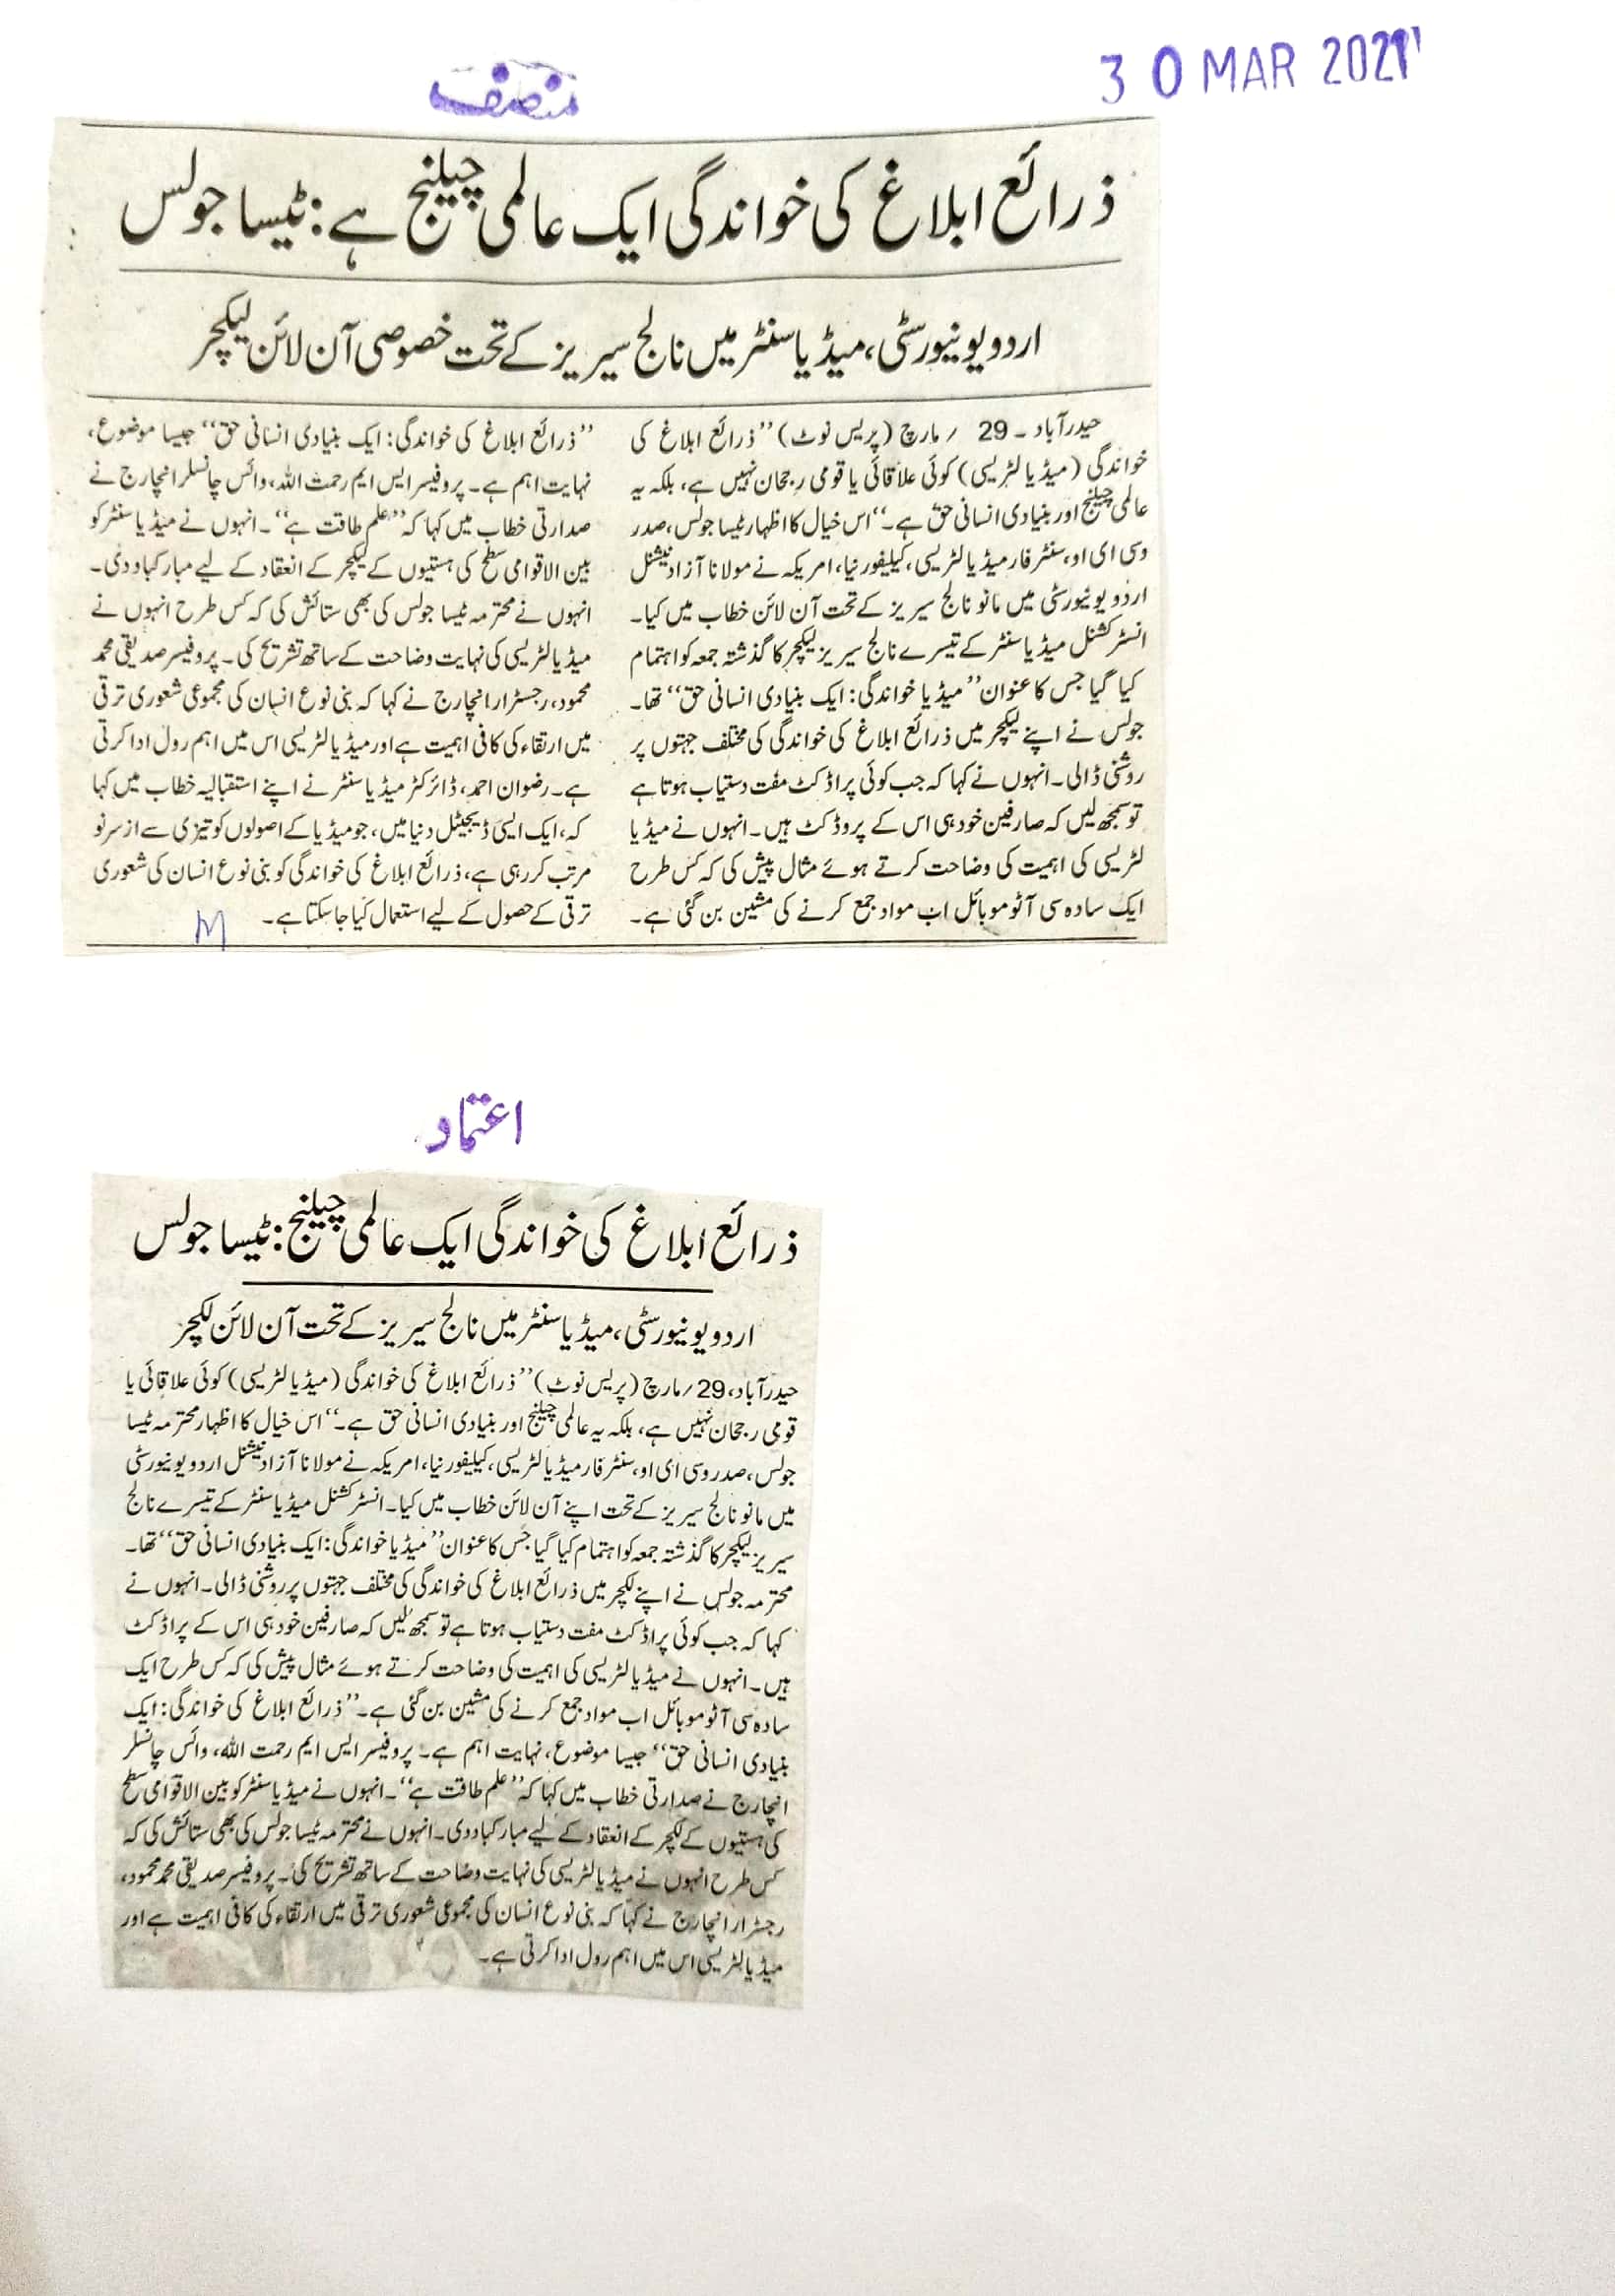 30 MAR 2021
منصف
ذرائع ابلاغ کی خواندگی ایک عالمی چیلنج ہے: ٹیسا جولس
اردو یونیورسٹی، میڈیا سنٹر میں نالج سیریز کے تحت خصوصی آن لائن لیکچر
حیدرآباد ۔ 29 / مارچ (پریس نوٹ) ’’ذرائع ابلاغ کی
خواندگی (میڈیا لٹریسی) کوئی علاقائی یا قومی رجحان نہیں ہے، بلکہ یہ
عالمی چیلنج اور بنیادی انسانی حق ہے۔‘‘ اس خیال کا اظہار ٹیسا جولس، صدر
وسی ای او، سنٹر فار میڈیا لٹریسی، کیلیفورنیا، امریکہ نے مولانا آزاد نیشنل
اردو یونیورسٹی میں مانو نالج سیریز کے تحت آن لائن خطاب میں کیا۔
انسٹرکشنل میڈیا سنٹر کے تیسرے نالج سیریز لیکچر کا گذشتہ جمعہ کو اہتمام
کیا گیا جس کا عنوان ’’میڈیا خواندگی: ایک بنیادی انسانی حق‘‘ تھا۔
جولس نے اپنے لیکچر میں ذرائع ابلاغ کی خواندگی کی مختلف جہتوں پر
روشنی ڈالی۔ انہوں نے کہا کہ جب کوئی پراڈکٹ مفت دستیاب ہوتا ہے
تو سمجھ لیں کہ صارفین خود ہی اس کے پروڈکٹ ہیں۔ انہوں نے میڈیا
لٹریسی کی اہمیت کی وضاحت کرتے ہوئے مثال پیش کی کہ کس طرح
ایک سادہ سی آٹو موبائل اب مواد جمع کرنے کی مشین بن گئی ہے۔
’’ذرائع ابلاغ کی خواندگی: ایک بنیادی انسانی حق‘‘ جیسا موضوع،
نہایت اہم ہے۔ پروفیسر ایس ایم رحمت اللہ، وائس چانسلر انچارج نے
صدارتی خطاب میں کہا کہ ’’علم طاقت ہے‘‘۔ انہوں نے میڈیا سنٹر کو
بین الاقوامی سطح کی ہستیوں کے لیکچر کے انعقاد کے لیے مبارکباد دی۔
انہوں نے محترمہ ٹیسا جولس کی بھی ستائش کی کہ کس طرح انہوں نے
میڈیا لٹریسی کی نہایت وضاحت کے ساتھ تشریح کی۔ پروفیسر صدیقی محمد
محمود، رجسٹرار انچارج نے کہا کہ بنی نوع انسان کی مجموعی شعوری ترقی
میں ارتقاء کی کافی اہمیت ہے اور میڈیا لٹریسی اس میں اہم رول ادا کرتی
ہے۔ رضوان احمد، ڈائرکٹر میڈیا سنٹر نے اپنے استقبالیہ خطاب میں کہا
کہ، ایک ایسی ڈیجیٹل دنیا میں، جو میڈیا کے اصولوں کو تیزی سے از سر نو
مرتب کر رہی ہے، ذرائع ابلاغ کی خواندگی کو بنی نوع انسان کی شعوری
ترقی کے حصول کے لیے استعمال کیا جا سکتا ہے۔
M
اعتماد
ذرائع ابلاغ کی خواندگی ایک عالمی چیلنج: ٹیسا جولس
اردو یونیورسٹی، میڈیا سنٹر میں نالج سیریز کے تحت آن لائن لکچر
حیدرآباد، 29 / مارچ (پریس نوٹ) ’’ذرائع ابلاغ کی خواندگی (میڈیا لٹریسی) کوئی علاقائی یا
قومی رجحان نہیں ہے، بلکہ یہ عالمی چیلنج اور بنیادی انسانی حق ہے۔‘‘ اس خیال کا اظہار محترمہ ٹیسا
جولس، صدر وسی ای او، سنٹر فار میڈیا لٹریسی، کیلیفورنیا، امریکہ نے مولانا آزاد نیشنل اردو یونیورسٹی
میں مانو نالج سیریز کے تحت اپنے آن لائن خطاب میں کیا۔ انسٹرکشنل میڈیا سنٹر کے تیسرے نالج
سیریز لیکچر کا گذشتہ جمعہ کو اہتمام کیا گیا جس کا عنوان ’’میڈیا خواندگی: ایک بنیادی انسانی حق‘‘ تھا۔
محترمہ جولس نے اپنے لکچر میں ذرائع ابلاغ کی خواندگی کی مختلف جہتوں پر روشنی ڈالی۔ انہوں نے
کہا کہ جب کوئی پراڈکٹ مفت دستیاب ہوتا ہے تو سمجھ لیں کہ صارفین خود ہی اس کے پراڈکٹ
ہیں۔ انہوں نے میڈیا لٹریسی کی اہمیت کی وضاحت کرتے ہوئے مثال پیش کی کہ کس طرح ایک
سادہ سی آٹو موبائل اب مواد جمع کرنے کی مشین بن گئی ہے۔ ’’ذرائع ابلاغ کی خواندگی: ایک
بنیادی انسانی حق‘‘ جیسا موضوع، نہایت اہم ہے۔ پروفیسر ایس ایم رحمت اللہ، وائس چانسلر
انچارج نے صدارتی خطاب میں کہا کہ ’’علم طاقت ہے‘‘۔ انہوں نے میڈیا سنٹر کو بین الاقوامی سطح
کی ہستیوں کے لکچر کے انعقاد کے لیے مبارکباد دی۔ انہوں نے محترمہ ٹیسا جولس کی بھی ستائش کی کہ
کس طرح انہوں نے میڈیا لٹریسی کی نہایت وضاحت کے ساتھ تشریح کی۔ پروفیسر صدیقی محمد محمود،
رجسٹرار انچارج نے کہا کہ بنی نوع انسان کی مجموعی شعوری ترقی میں ارتقاء کی کافی اہمیت ہے اور
میڈیا لٹریسی اس میں اہم رول ادا کرتی ہے۔